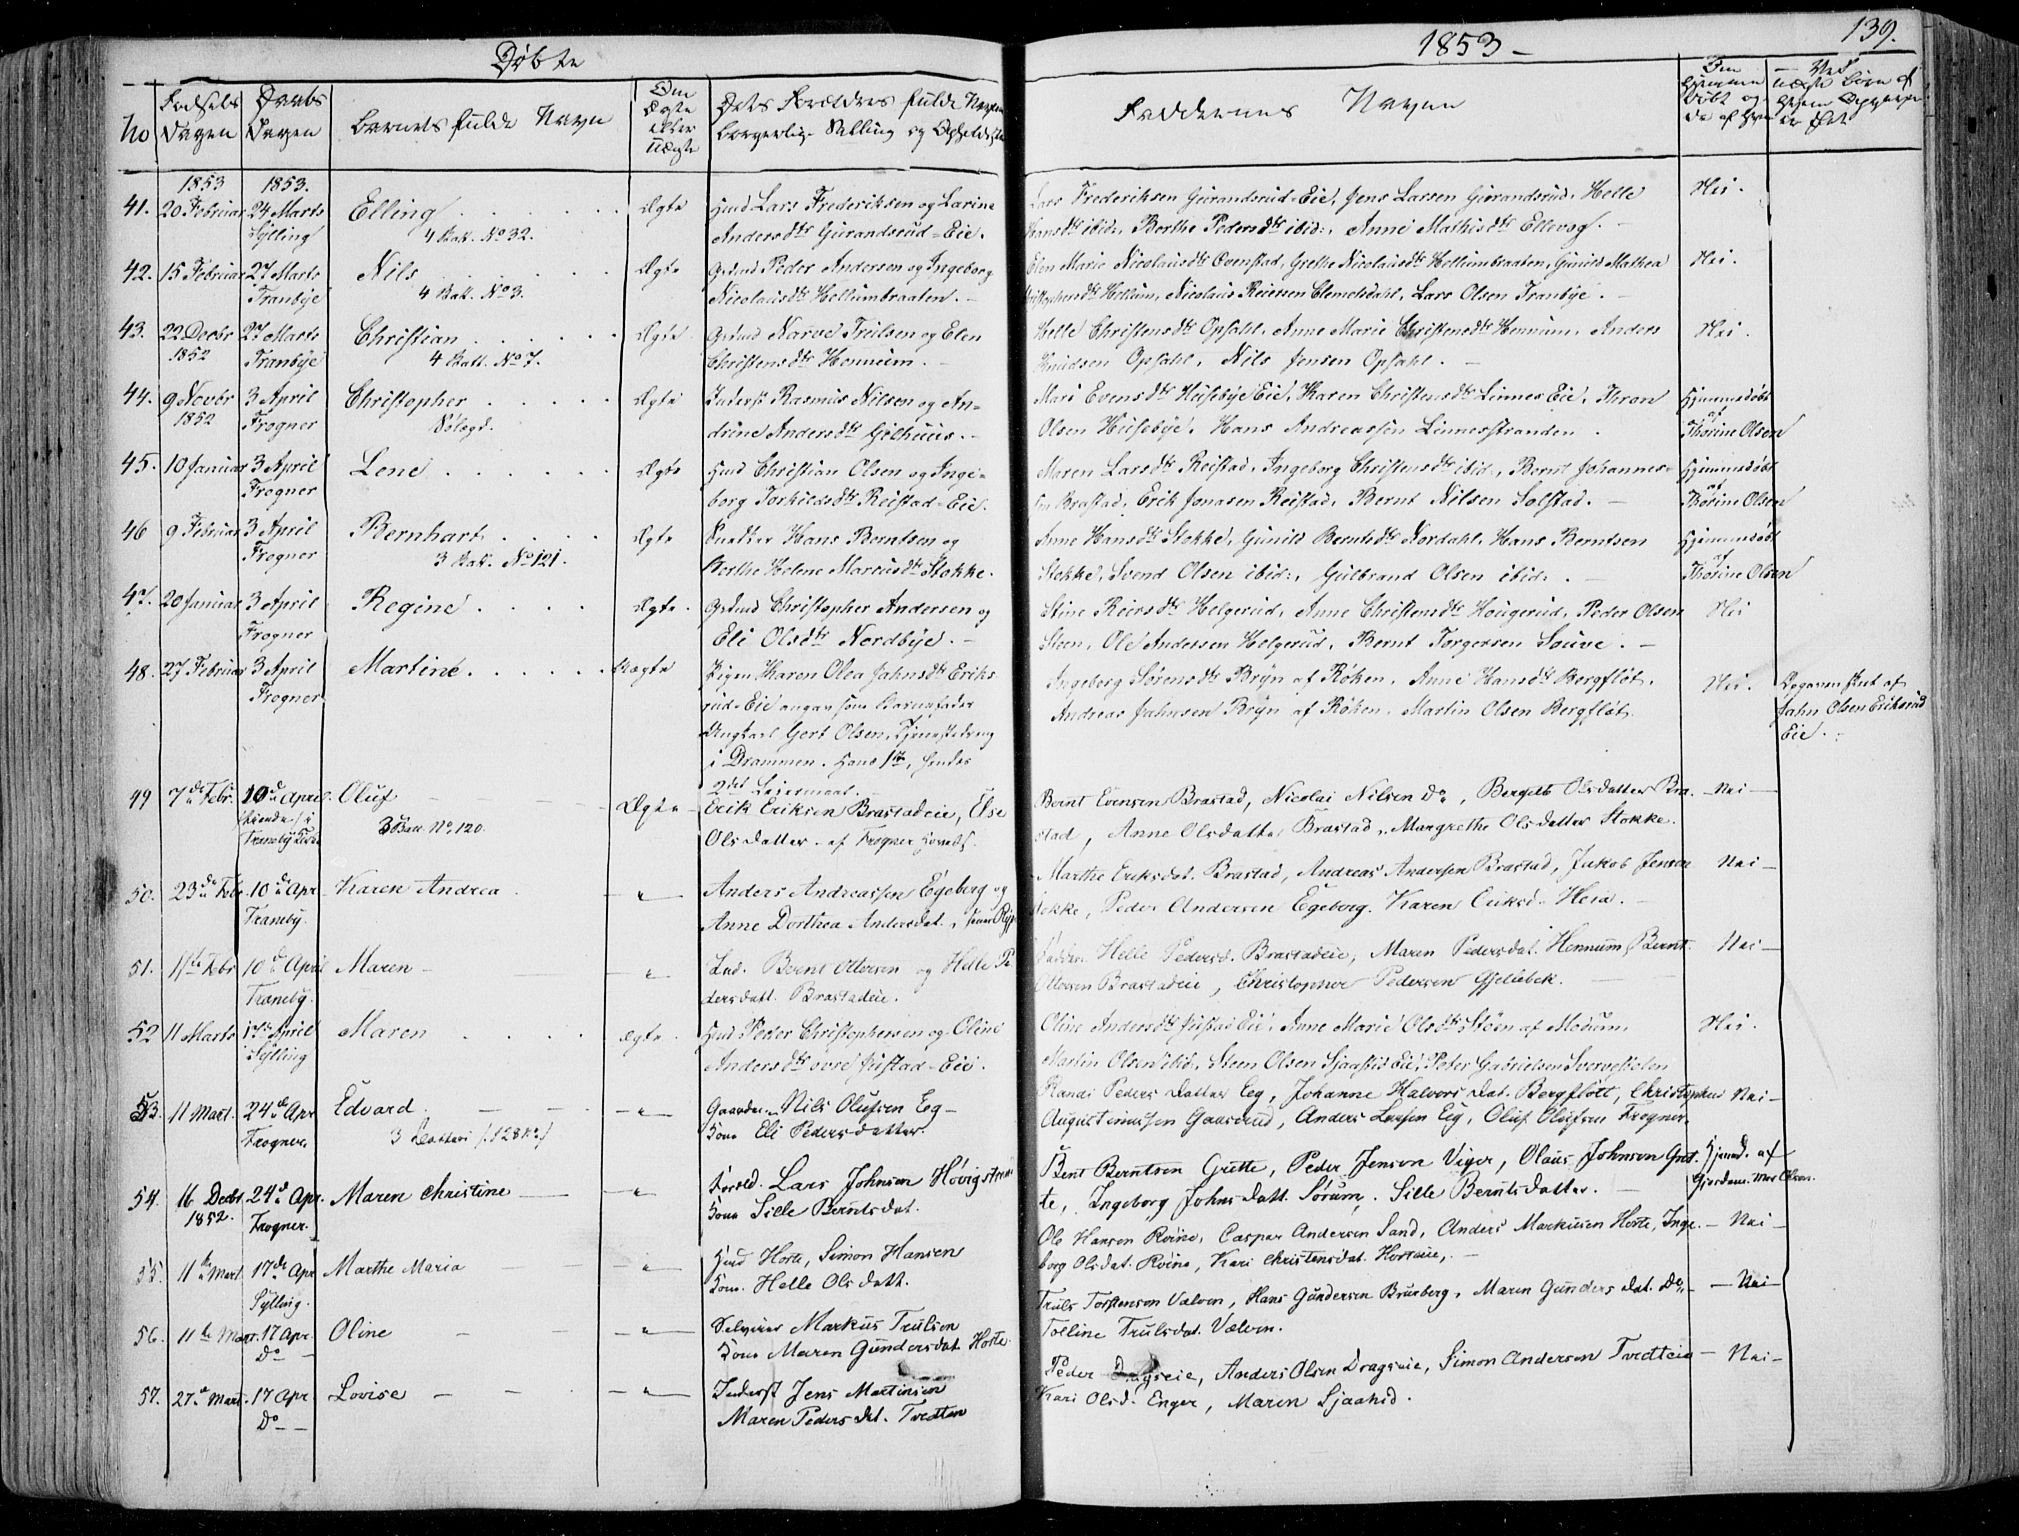 Døbte
1853 –
139.
No
Fødsels Dagen
Daabs Dagen
Barnets fulde Navn
Om Ægte eller Uægte
Dets Forældres fulde Navne
borgerlig Stilling og Opholdsste
Faddernes Navne
1853 1853.
41. 20 Februar 24 Marts Sylling
Elling
4 Batt. No 32.
Ægte
Husd Lars Frederiksen og Larine
Andersdtr Gurandsrud-Eie.
Lars Frederiksen Gurandsrud-Eie, Jens Larsen Gurandsrud, Helle
Hansdtr ibid:, Berthe Pedersdtr ibid:, Anne Mathisdtr Ellevog. –
Nei.
42. 15 Februar 27 Marts Tranbye
Nils
4 Batt. No 3.
Ægte
Gdmd Peder Andersen og Ingeborg
Nicolausdtr Hellumbraaten. –
Elen Marie Nicolausdtr Ovenstad, Grethe Nicolausdtr Hellumbraaten, Gunild Mathea
Christophersdtr Hellum, Nicolaus Reiersen Clemetsdahl, Lars Olsen Tranbye. –
Nei.
43. 22 Decbr 1852 27 Marts Tranbye
Christian
4 Batt. No 7.
Ægte
Gdmd Narve Trulsen og Elen
Christensdtr Hennum. –
Helle Christensdtr Opsahl, Anne Marie Christensdtr Hennum, Anders
Knudsen Opsahl, Nils Jensen Opsahl. –
Nei.
44. 9 Novbr 1852 3 April Frogner
Christopher
Søløgd.
Ægte
Inderst Rasmus Nilsen og An-
drine Andersdtr Gilhuus. –
Mari Evensdtr Husebye Eie, Karen Christensdtr Linnes Eie, Thron
Olsen Husebye, Hans Andreassen Linnesstranden.
Hjemmedøbt af Thorine Olsen
45. 10 Januar 3 April Frogner
Lene
Ægte
Husd Christian Olsen og Inge-
borg Torkildsdtr Reistad-Eie.
Maren Larsdtr Reistad, Ingeborg Christensdtr ibid:, Bernt Johannes-
sen Brastad, Erik Jonasen Reistad, Bernt Nilsen Solstad. –
Hjemmedøbt af Thorine Olsen
46 9 Februar 3 April Frogner
Bernhart
3 Batt. No 121.
Ægte
Hans Berntsen og
Berthe Helene Mareusdtr Stokke.
Anne Hansdtr Stokke, Gunild Berntsdtr Nordahl, Hans Berntsen
Stokke, Svend Olsen ibid:, Gulbrand Olsen ibid: –
Hjemmedøbt af Thorine Olsen
47. 20 Januar 3 April Frogner
Regine
Ægte
Gdmd Christopher Andersen og
Eli Olsdtr Nordbye. –
Stine Reiersdtr Helgerud, Anne Christensdtr Haugerud, Peder Olsen
Steen, Ole Andersen Helgerud, Bernt Torgersen Souve. –
Nei
48. 27 Februar 3 April Frogner
Martine
Uægte
Pigen Karen Olea Jahnsdtr Eriks
rud-Eie angav som Barnefader
Ungkarl Gert Olsen, Tjenestedreng
i Drammen. Hans 1ste, hendes
2det Leiermaal.
Ingeborg Sørensdtr Bryn af Røken, Anne Hansdtr Bergfløt,
Andreas Jahnsen Bryn af Røken, Martin Olsen Bergfløt.
Nei.
Begaven skeet af
Jahn Olsen Eriksrud
Eie.
49 7de Febr. 10de April
Tranby Kirke
Oluf
3 Batt No 120.
Ægte
Erik Eriksen Brastadeie, Else
Olsdatter af Frogner Hoveds.
Bernt Evensen Brastad, Nicolai Nilsen Do, Bergete Olsdatter Bra-
stad, Anne Olsdatter Brastad, Margrethe Olsdatter Stokke.
– Nei –
50. 23de Febr. 10de Apr Tranby.
Karen Andrea
– " –
Anders Andreassen Egeberg og
Anne Dorthea Andersdat.
Marthe Eriksdat. Brastad, Andreas Andersen Brastad, Jakob Jensen
Stokke, Peder Andersen Egeberg. Karen Eriksd. Heia. –
Nei –
51. 11te Febr 10de April Tranby.
Maren –
– " –
Ind. Bernt Ottersen og Helle Pe
dersdatt. Brastadeie.
Helle Pedersd. Brastadeie, Maren Pedersdat. Hennum, Bernt
Ottersen Brastadeie, Christopher Pedersen Gjellebek.
Nei –
52 11 Marts 17de April Sylling
Maren
Ægte
Husd Peder Christophersen og Oline
Andersdtr øvre Justad-Eie.
Oline Andersdtr Justad Eie, Anne Marie Olsdtr Støen af Modum,
Martin Olsen ibid:, Steen Olsen Sjaastad Eie, Peter Gabrielsen Svervestolen
Nei.
53. 11 Mart. 24de Apr Frogner.
Edvard
3 Batteri (128 No)
– " –
Gaardm. Nils Olufsen Eeg –
Kone Eli Pedersdatter.
Randi Peders datter Eeg, Johanne Halvorsdat. Bergfløtt, Christopher
Augustinussen Gaasrud, Anders Larsen Eeg, Oluf Olufsen Frogner.
Nei –
54. 16 Decbr 1852. 24de Apr. Frogner.
Maren Christine
– " –
Lars Johnsen Høvigstran
Kone Sille Berntsdat.
Bent Berntsen Grette, Peder Jensen Viger, Olaus Johnsen Gret-
te, Ingeborg Johnsdatt. Sørum, Sille Berntsdatter. –
Hjemd. af
Gjordem. Mor Olsen.
55. 11te Mart. 17de Apr Sylling.
Marthe Maria
– " –
Husd Horte, Simon Hansen
Kone. Helle Olsdatt.
Ole Hansen Roine, Caspar Andersen Sand, Anders Markusen Horte, Inge-
borg Olsdat. Roine, Kari Christensdat. Horteie, –
– Nei –
56. 11te Mars. 17 Apr. Do –
Oline
– " –
Selveier Markus Trulsen
Kone Maren Gundersdat. Horte
Truls Torstensen Valven, Hans Gundersen Brunberg, Maren Gundersdat. Do
Tolline Trulsdat. Valven.
– Nei –
57. 27de Mart. 17 Apr Do –
Lovise
– " –
Inderst Jens Martinsen
Maren Pedersdat. Tvedten
Peder Dragseie, Anders Olsen Dragseie, Simon Andersen Tvedteie
Kari Olsd. Enger, Maren Sjaastad.
– Nei –